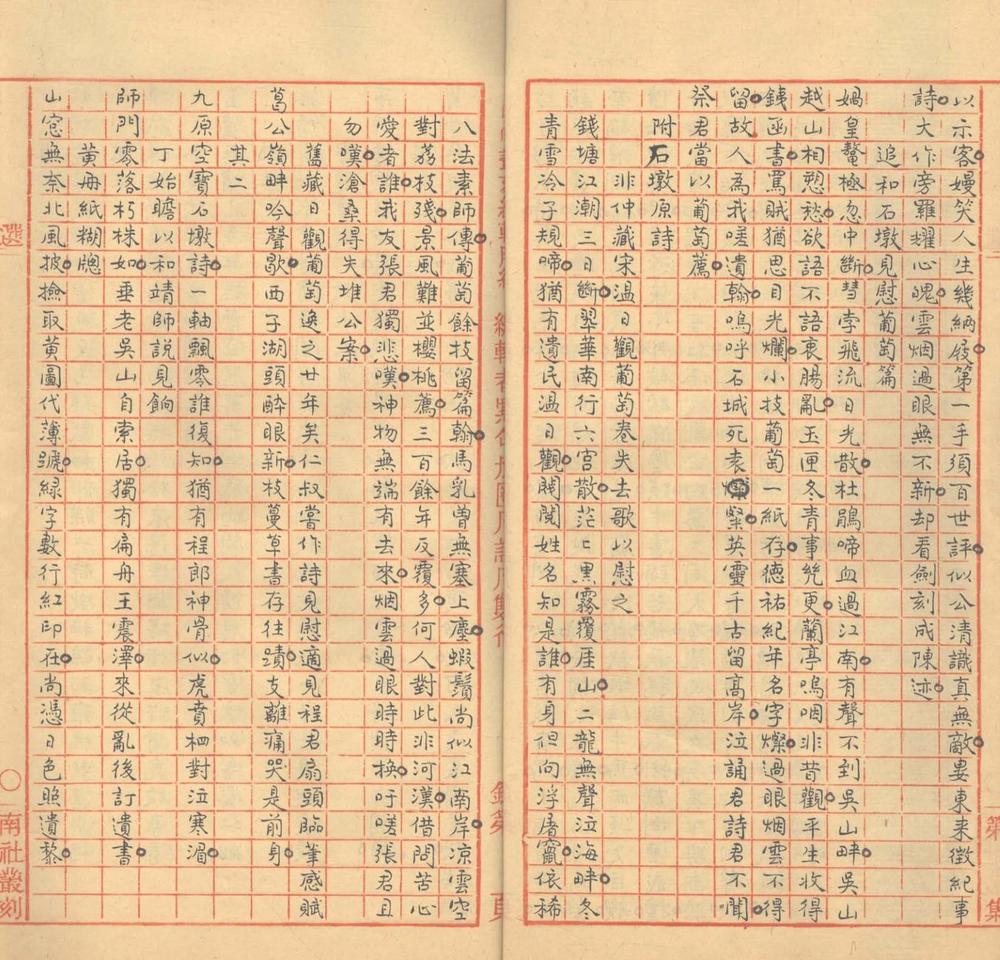 以示客嫚笑人生幾緉屐第一手須百世評似公清識真無敵婁東来徵紀事
詩大作旁羅耀心魄雲烟過眼無不新却看劍刻成陳迹
追和石墩見慰葡萄篇
媧皇鼇極忽中斷彗孛飛流日光散杜鵑啼血過江南有聲不到吳山畔吳山
越山相愬愁欲語不語衷腸亂玉匣冬青事凭更蘭亭嗚咽非昔觀平生收得
錢函書罵賊猶思目光爛小技葡萄一紙存德祐紀年名字燦過眼烟雲不得
留故人為我嗟遺翰嗚呼石城死袁粲英靈千古留高岸泣誦君詩君不聞
祭君當以葡萄薦
附石墩原詩
非仲藏宋温日觀葡萄卷失去歌以慰之
錢塘江潮三日斷翠華南行六宫散茫〻黒霧覆厓山二龍無聲泣海畔冬
青雪冷子規啼猶有遺民温日觀閱閱姓名知是誰有身但向浮屠竄依稀
八法素師傳葡萄餘技留篇翰馬乳曾無塞上塵蝦鬚尚似江南岸凉雲空
對荔枝殘景風難並櫻桃薦三百餘年反覆多何人對此非河漢借問苦心
愛者誰我友張君獨悲嘆神物無端有去來烟雲過眼時時换吁嗟張君且
勿嘆滄桑得失堆公案
舊藏日觀葡萄逸之廿年矣仁叔嘗作詩見慰適見程君扇頭臨筆感賦
葛公嶺畔吟聲歇西子湖頭醉眼新枝蔓草書存往蹟支離痛哭是前身
其二
九原空寶石墩詩一軸飄零誰復知猶有程郎神骨似虎賁栖對泣寒湄
丁始瞻以和靖師説見餉
師門零落朽株如垂老吳山自索居獨有扁舟王震澤來從亂後訂遺書
黄冊紙糊牕
山窓無奈北風披撿取黄圖代薄號緑字數行紅印在尚憑日色照遺黎
選
南社叢刻
第
集